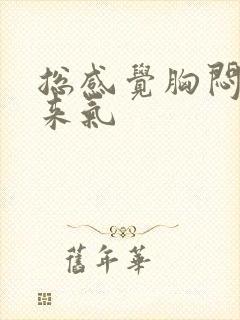 總感覺胸悶
来氣
舊年華